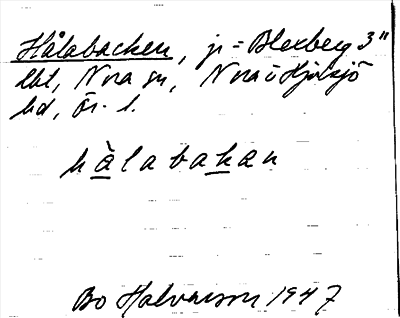 Hålabacken, jr = Blexberg 3"
lbt, Nora sn, Nora o Hjulsjö
hd, Ör. l.
hålabakan
Bo Halvarson 1947